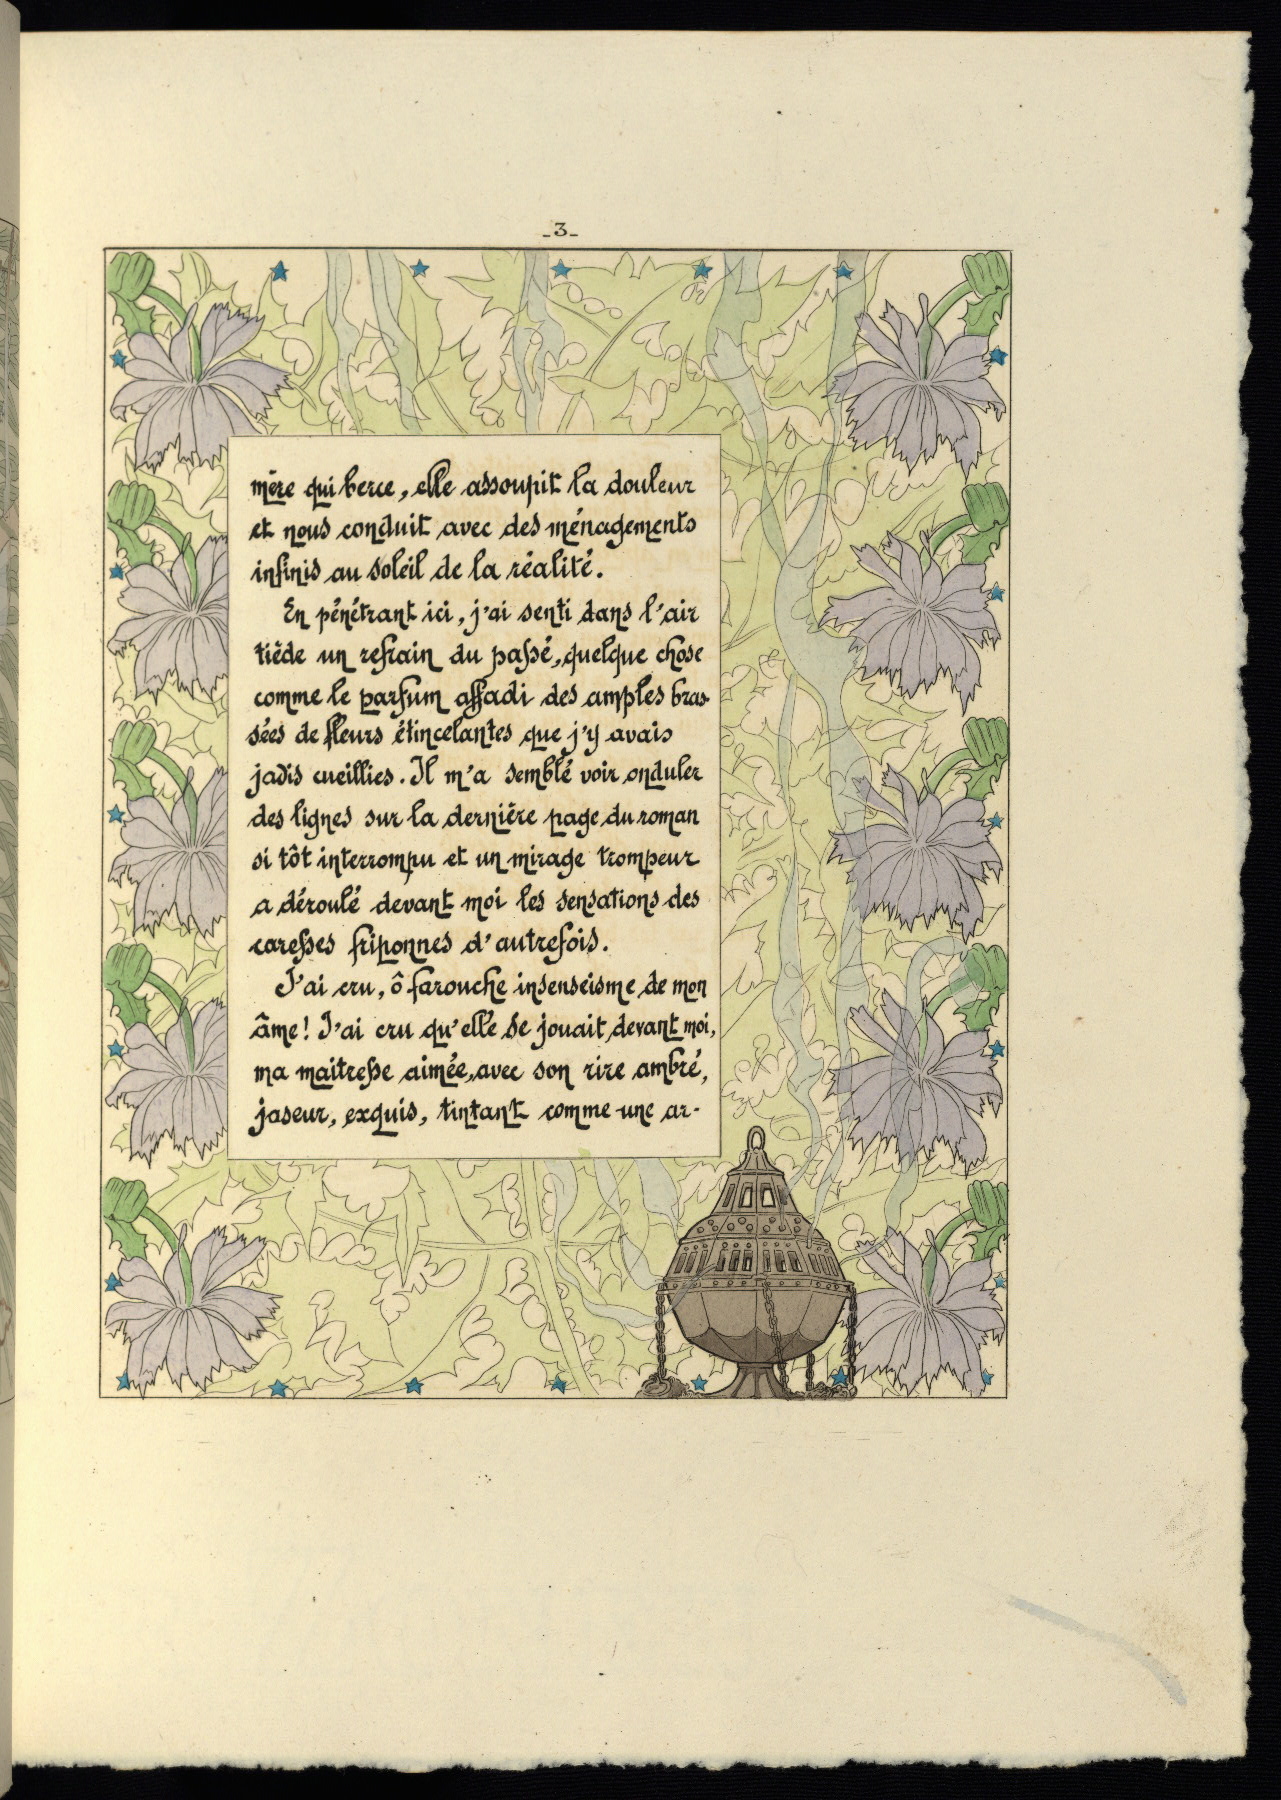 -3-
mère qui berce, elle assoupit la douleur
et nous conduit avec des ménagements
infinis au soleil de la réalité.
En pénétrant ici, j'ai senti dans l'air
tiède un refrain du passé, quelque chose
comme le parfum affadi des amples bras-
sées de fleurs étincelantes que j'y avais
jadis cueillies. Il m'a semblé voir onduler
des lignes sur la dernière page du roman
si tôt interrompu et un mirage trompeur
a déroulé devant moi les sensations des
caresses friponnes d'autrefois.
J'ai cru, ô farouche insenseisme de mon
âme! J'ai cru qu'elle se jouait devant moi,
ma maitresse aimée, avec son rire ambré,
jaseur, exquis, tintant comme une ar-